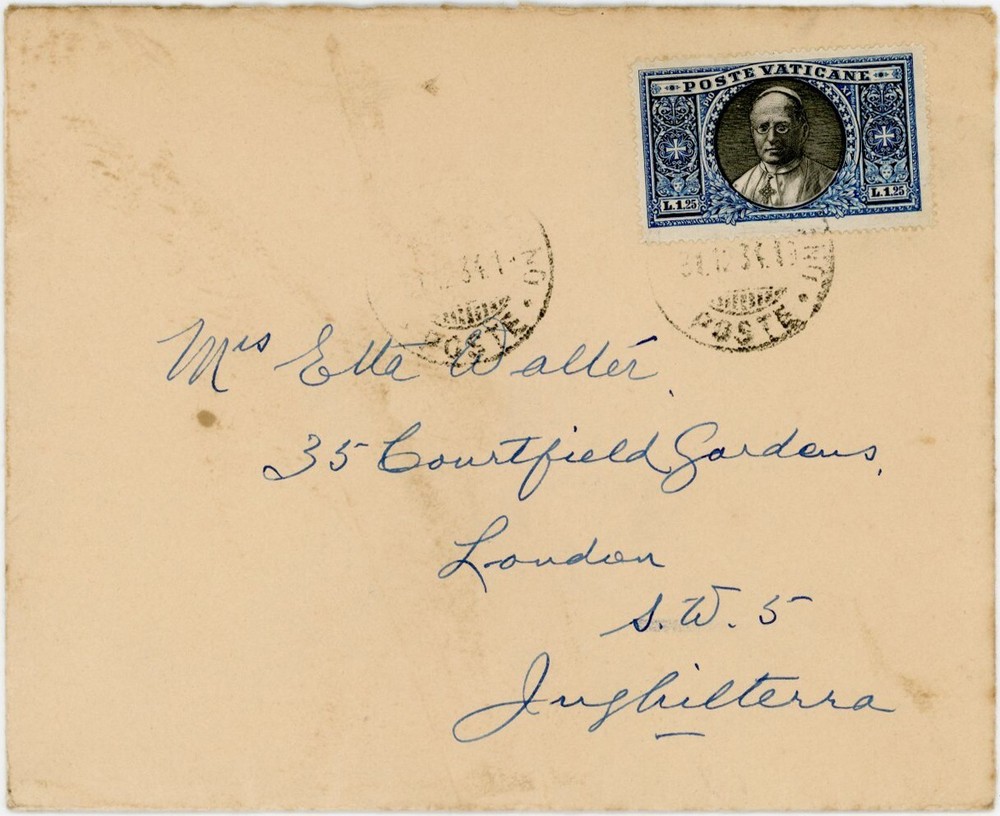 POSTE VATICANE
L.1.25 L.1.25
POSTE
31.12.34.1
POSTE
Mrs Etta Walter
35 Courtfield Gardens,
London
S.W. 5
Inghilterra